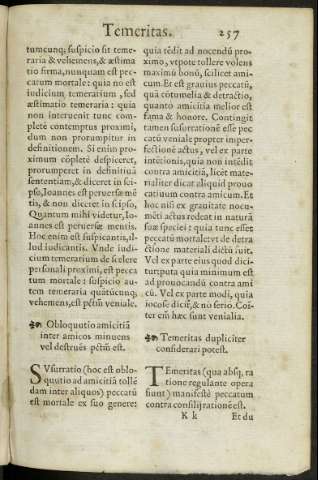 Temeritas. 257
tumcunq; suspicio sit teme-
raria & vehemens, & æstima
tio firma, nunquam est pec-
catum mortale: quia no est
iudicium temerarium, sed
æstimatio temeraria: quia
non interuenit tunc com-
pletè contemptus proximi,
dum non prorumpitur in
definitionem. Si enim pro-
ximum cõpletè despiceret,
prorumperet in definitiuã
sententiam, & diceret in sei-
pso, Ioannes est peruersæ mẽ
tis, & non diceret in seipso,
Quantum mihi videtur, Io-
annes est peruersæ mentis.
Hoc enim est suspicantis, il-
lud iudicantis. Vnde iudi-
cium temerarium de scelere
personali proximi, est pecca
tum mortale: suspicio au-
tem temeraria quãtũcunq;
vehemens, est pctm veniale.
Obloquutio amicitiã
inter amicos minuens
vel destruẽs pctm est.
SVsurratio (hoc est oblo-
quutio ad amicitiã tollẽ
dam inter aliquos) peccatũ
est mortale ex suo genere:
quia tẽdit ad nocendũ pro-
ximo, vtpote tollere volens
maximũ bonũ, scilicet ami-
cum. Et est grauius peccatũ,
quã cõtumelia, & detractio,
quanto amicitia melior est
fama & honore. Contingit
tamen susurrationẽ esse pec
catũ veniale propter imper-
fectionẽ actus, vel ex parte
intẽtionis, quia non intẽdit
contra amicitiã, licèt mate-
rialiter dicat aliquid prouo
catiuum contra amicum. Et
hoc nisi ex grauitate nocu-
mẽti actus redeat in naturã
suæ speciei: quia tunc esset
peccatũ mortale: vt de detra
ctione materiali dictũ fuit.
Vel ex parte eius quod dici-
tur: vtputa quia minimum est
ad prouocandũ contra ami
cũ. Vel ex parte modi, quia
iocosè dicit, & nõ serio. Cõi-
ter em̃ hæc sunt venialia.
Temeritas dupliciter
considerari potest.
TEmeritas (qua absq; ra
tione regulante opera
fiunt) manifestè peccatum
contra consilij rationẽ est.
K k Et du